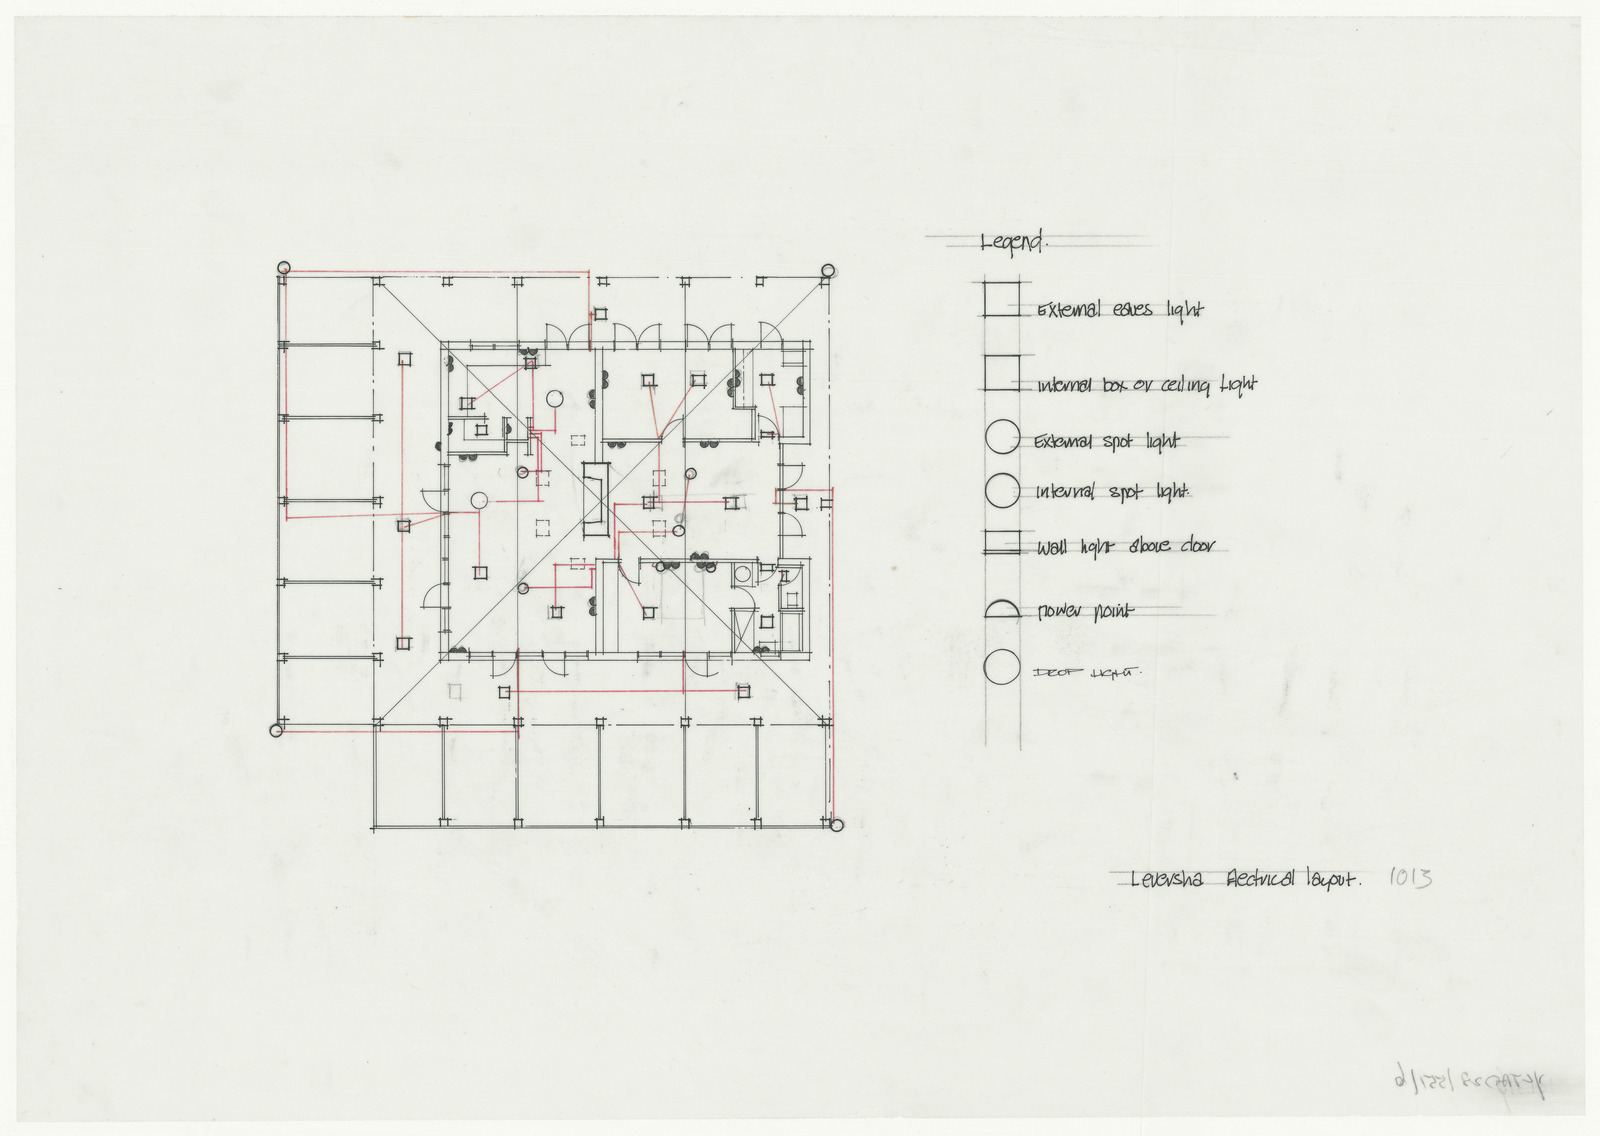 Legend.
External eaves light
internal box or ceiling light
External spot light
internal spot light.
wall light above door
power point
DROP LIGHT.
Leversha Electrical layout. 1013